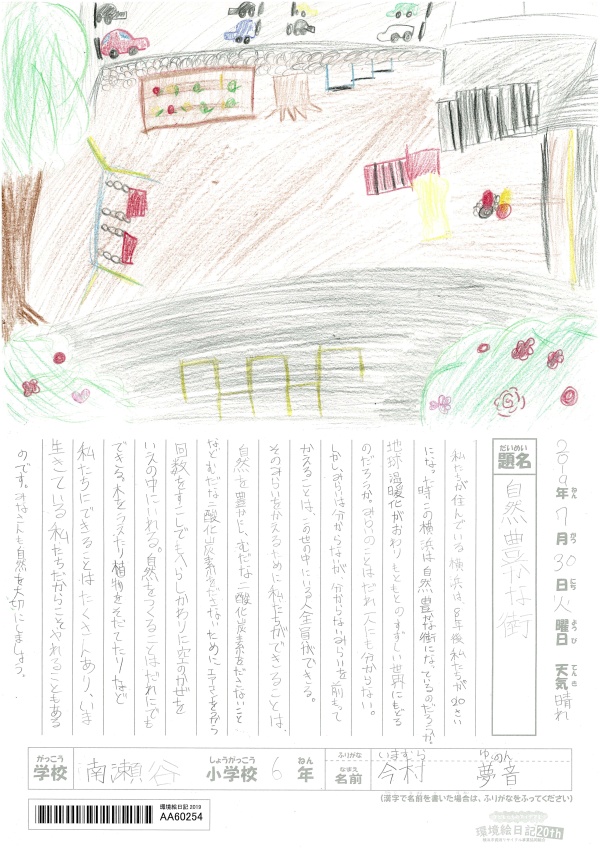 2019年 7月 30日 火曜日 天気 晴れ
ねん がつ にち ようび てんき
だいめい
題名 自然豊かな街
私たちが住んでいる横浜は8年後私たちが20さい
になった時この横浜は自然豊かな街になっているのだろうか。
地球温暖化がおわりもともとのすずしい世界にもどる
のだろうか。みらいのことはだれ一人にも分からない。
しかし、みらいは分からなが、分からないみらいを前もって
かえることは、この世の中にいる人全員ができる。
そのみらいをかえるために私たちができることは、
自然を豊かにし、むだな二酸化炭素をださないこと
などむだな二酸化炭素をださないためにエアコンをつかう
回数をすこしでもへらしかわりに空のかぜを
いえの中にいれる。自然をつくることはだれにでも
できる。木をうえたり植物をそだてたりなど
私たちにできることはたくさんあり、いま
生きている私たちだからこそやれることもある
のです。みなさんも自然を大切にしましょう。
がっこう しょうがっこう ねん ふりがな いまむら ゆのん
学校 南瀬谷 小学校 6 年 なまえ 名前 今村 夢音
(漢字で名前を書いた場合は、ふりがなをふってください)
環境絵日記 2019
AA60254
環境絵日記 20th